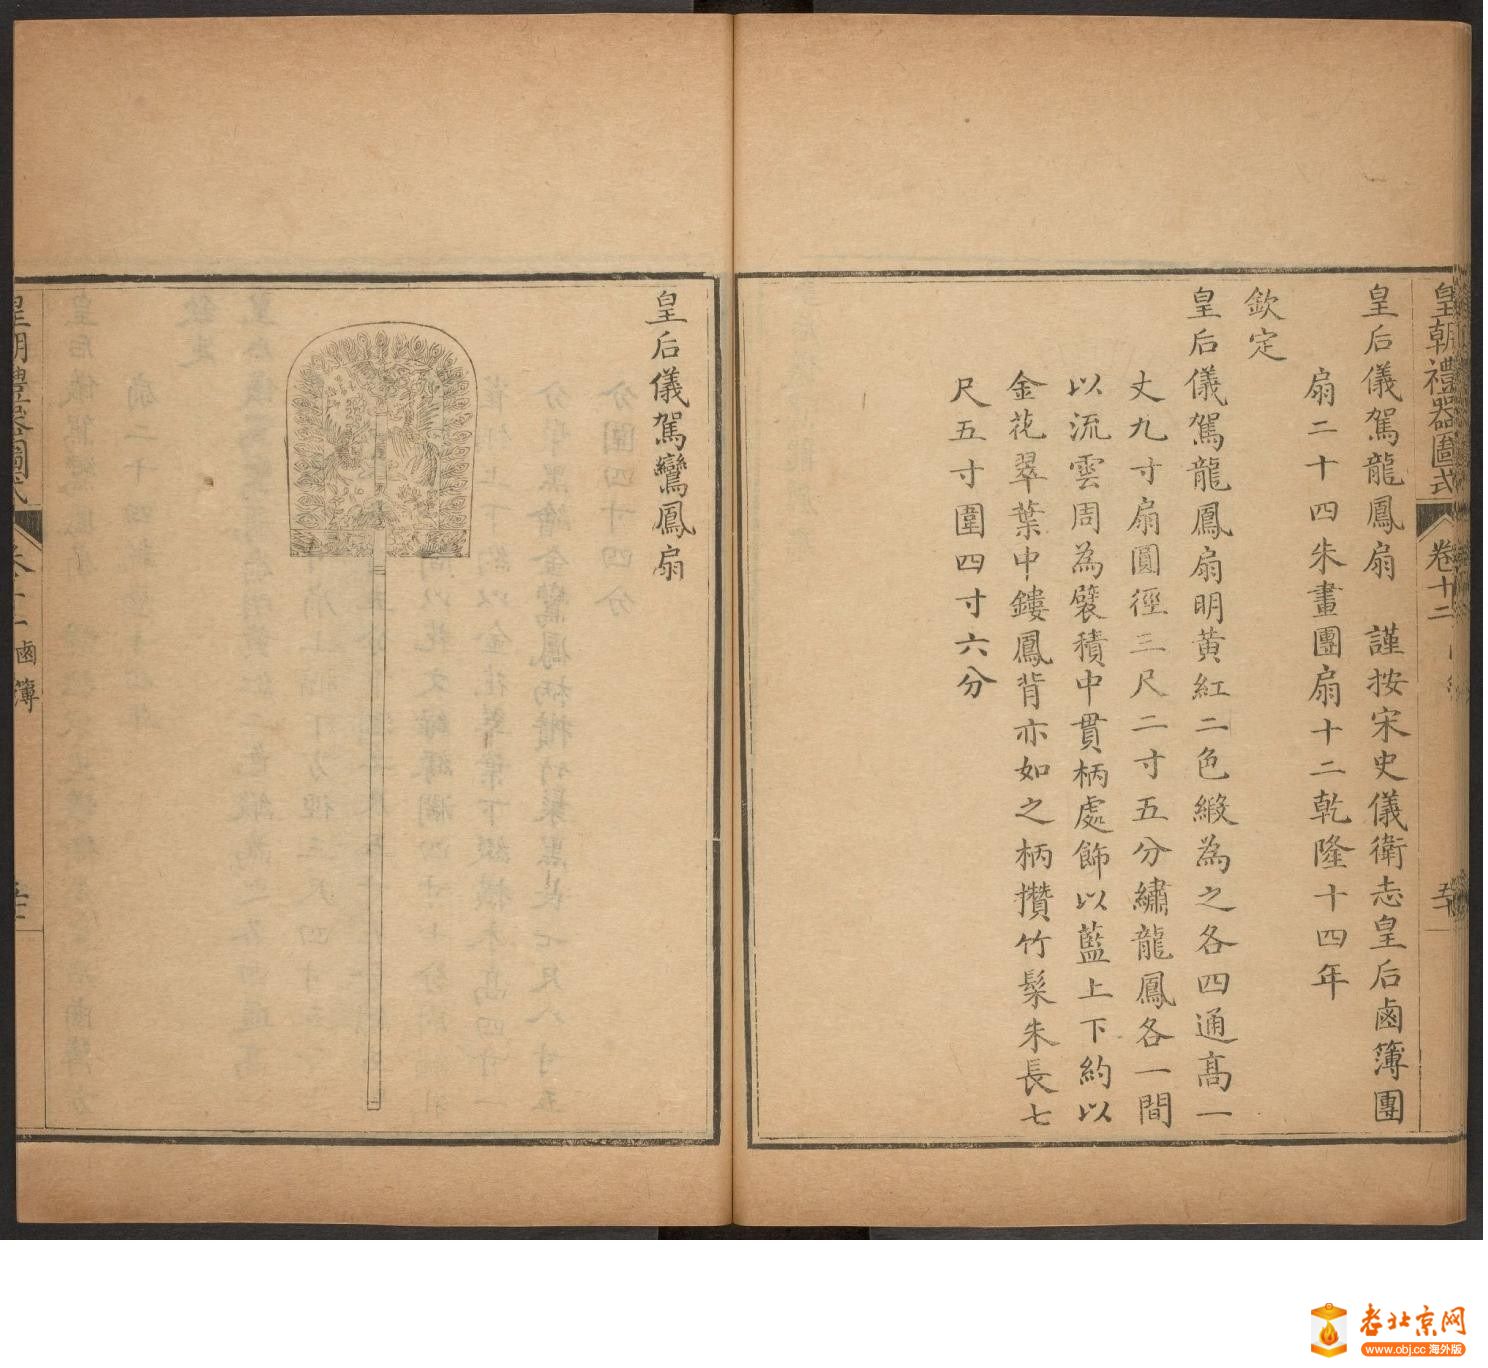 皇朝禮器圖式
卷十二
皇后儀駕龍鳳扇 謹按宋史儀衛志皇后鹵簿團
扇二十四朱畫團扇十二乾隆十四年
欽定
皇后儀駕龍鳳扇明黃紅二色緞為之各四通高一
丈九寸扇圓徑三尺二寸五分繡龍鳳各一間
以流雲周為襞積中貫柄處飾以藍上下約以
金花翠葉中鏤鳳背亦如之柄攢竹髹朱長七
尺五寸圍四寸六分
皇后儀駕鸞鳳扇
皇朝禮器圖式
鹵簿
老北京网
www.obj.cc 海外版